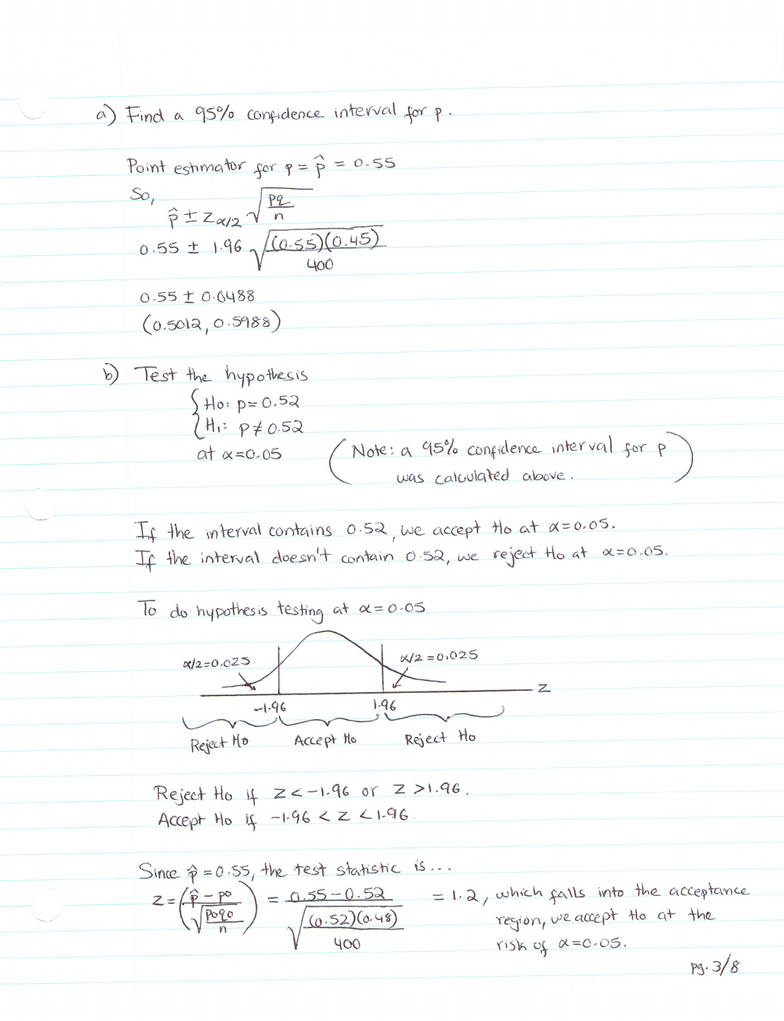 a) Find a 95% confidence interval for p.
Point estimator for p = p̂ = 0.55
So,
p̂ ± Zα/2 √(pq/n)
0.55 ± 1.96 √((0.55)(0.45)/400)
0.55 ± 0.0488
(0.5012, 0.5988)
b) Test the hypothesis
{ Ho: p = 0.52
{ H1: p ≠ 0.52
at α=0.05
(Note: a 95% confidence interval for p
was calculated above.)
If the interval contains 0.52, we accept Ho at α=0.05.
If the interval doesn't contain 0.52, we reject Ho at α=0.05.
To do hypothesis testing at α=0.05
α/2=0.025 α/2=0.025
Z
-1.96 1.96
Reject Ho Accept Ho Reject Ho
Reject Ho if Z < -1.96 or Z > 1.96.
Accept Ho if -1.96 < Z < 1.96
Since p̂ = 0.55, the test statistic is...
Z = (p̂ - po / √(poqo/n)) = 0.55 - 0.52 / √((0.52)(0.48)/400) = 1.2, which falls into the acceptance
region, we accept Ho at the
risk of α=0.05.
pg. 3/8